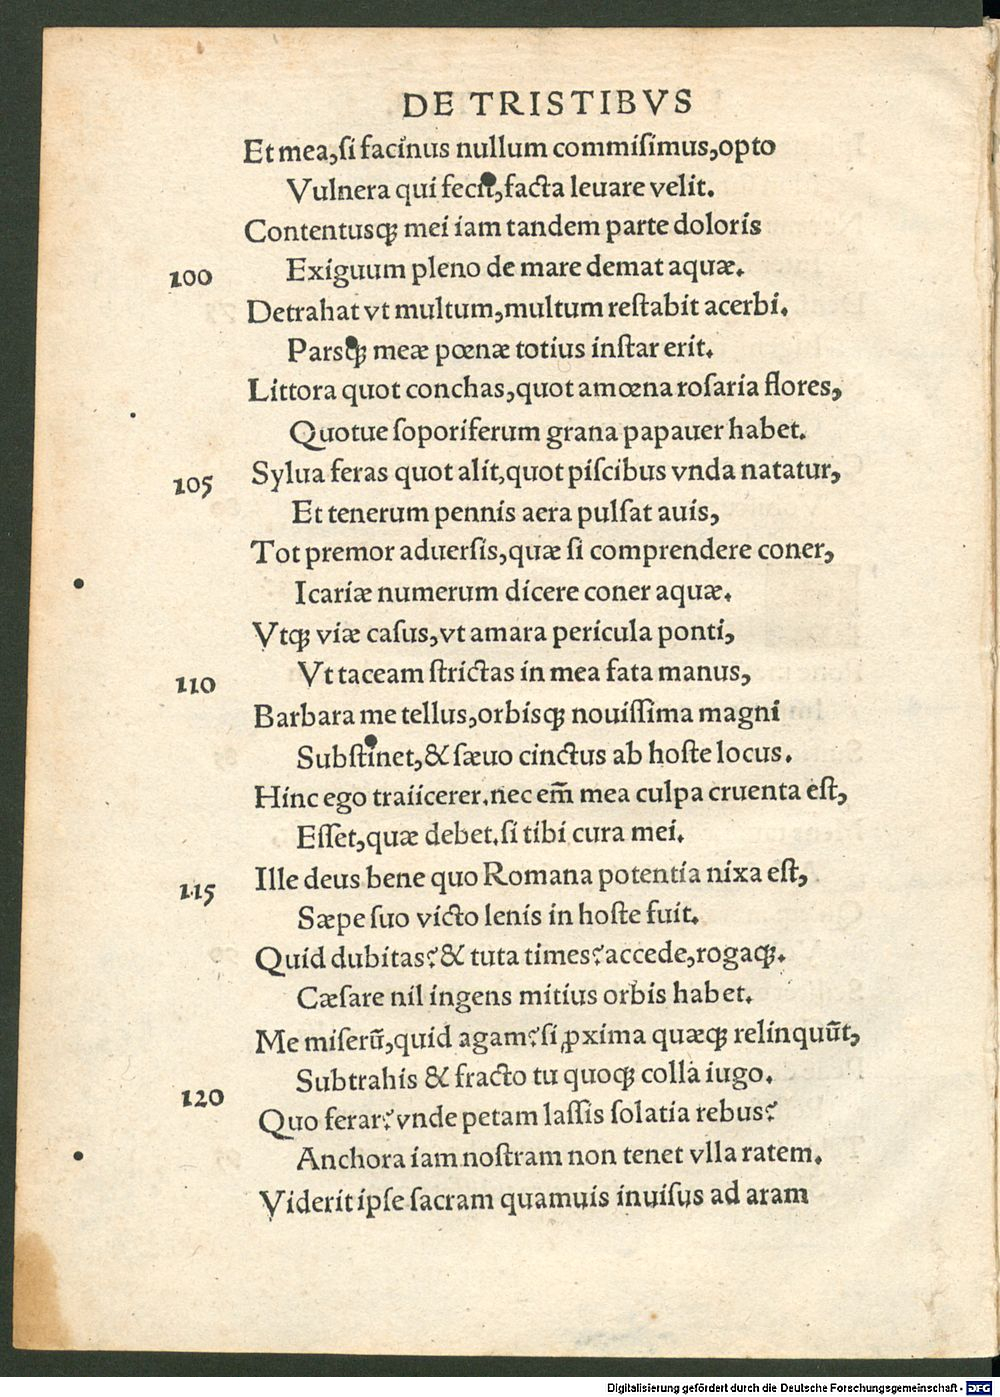 DE TRISTIBVS
Et mea,ſi facinus nullum commiſimus,opto
Vulnera qui fecit,facta leuare velit.
Contentusq̃ mei iam tandem parte doloris
100 Exiguum pleno de mare demat aquæ.
Detrahat vt multum,multum reſtabit acerbi.
Parsq̃ meæ pœnæ totius inſtar erit.
Littora quot conchas,quot amœna roſaria flores,
Quotue ſoporiferum grana papauer habet.
105 Sylua feras quot alit,quot piſcibus vnda natatur,
Et tenerum pennis aera pulſat auis,
Tot premor aduerſis,quæ ſi comprendere coner,
Icariæ numerum dicere coner aquæ.
Vtq̃ viæ caſus,vt amara pericula ponti,
110 Vt taceam ſtrictas in mea fata manus,
Barbara me tellus,orbisq̃ nouiſſima magni
Subſtinet,& ſæuo cinctus ab hoſte locus.
Hinc ego traiicerer.nec em̃ mea culpa cruenta eſt,
Eſſet,quæ debet.ſi tibi cura mei.
115 Ille deus bene quo Romana potentia nixa eſt,
Sæpe ſuo victo lenis in hoſte fuit.
Quid dubitas?& tuta times?accede,rogaq̃.
Cæſare nil ingens mitius orbis habet.
Me miserũ,quid agam?ſi ꝓxima quæq̃ relinquũt,
120 Subtrahis & fracto tu quoq̃ colla iugo.
Quo ferar?vnde petam laſſis ſolatia rebus?
Anchora iam noſtram non tenet vlla ratem.
Viderit ipſe ſacram quamuis inuiſus ad aram
Digitalisierung gefördert durch die Deutsche Forschungsgemeinschaft - DFG